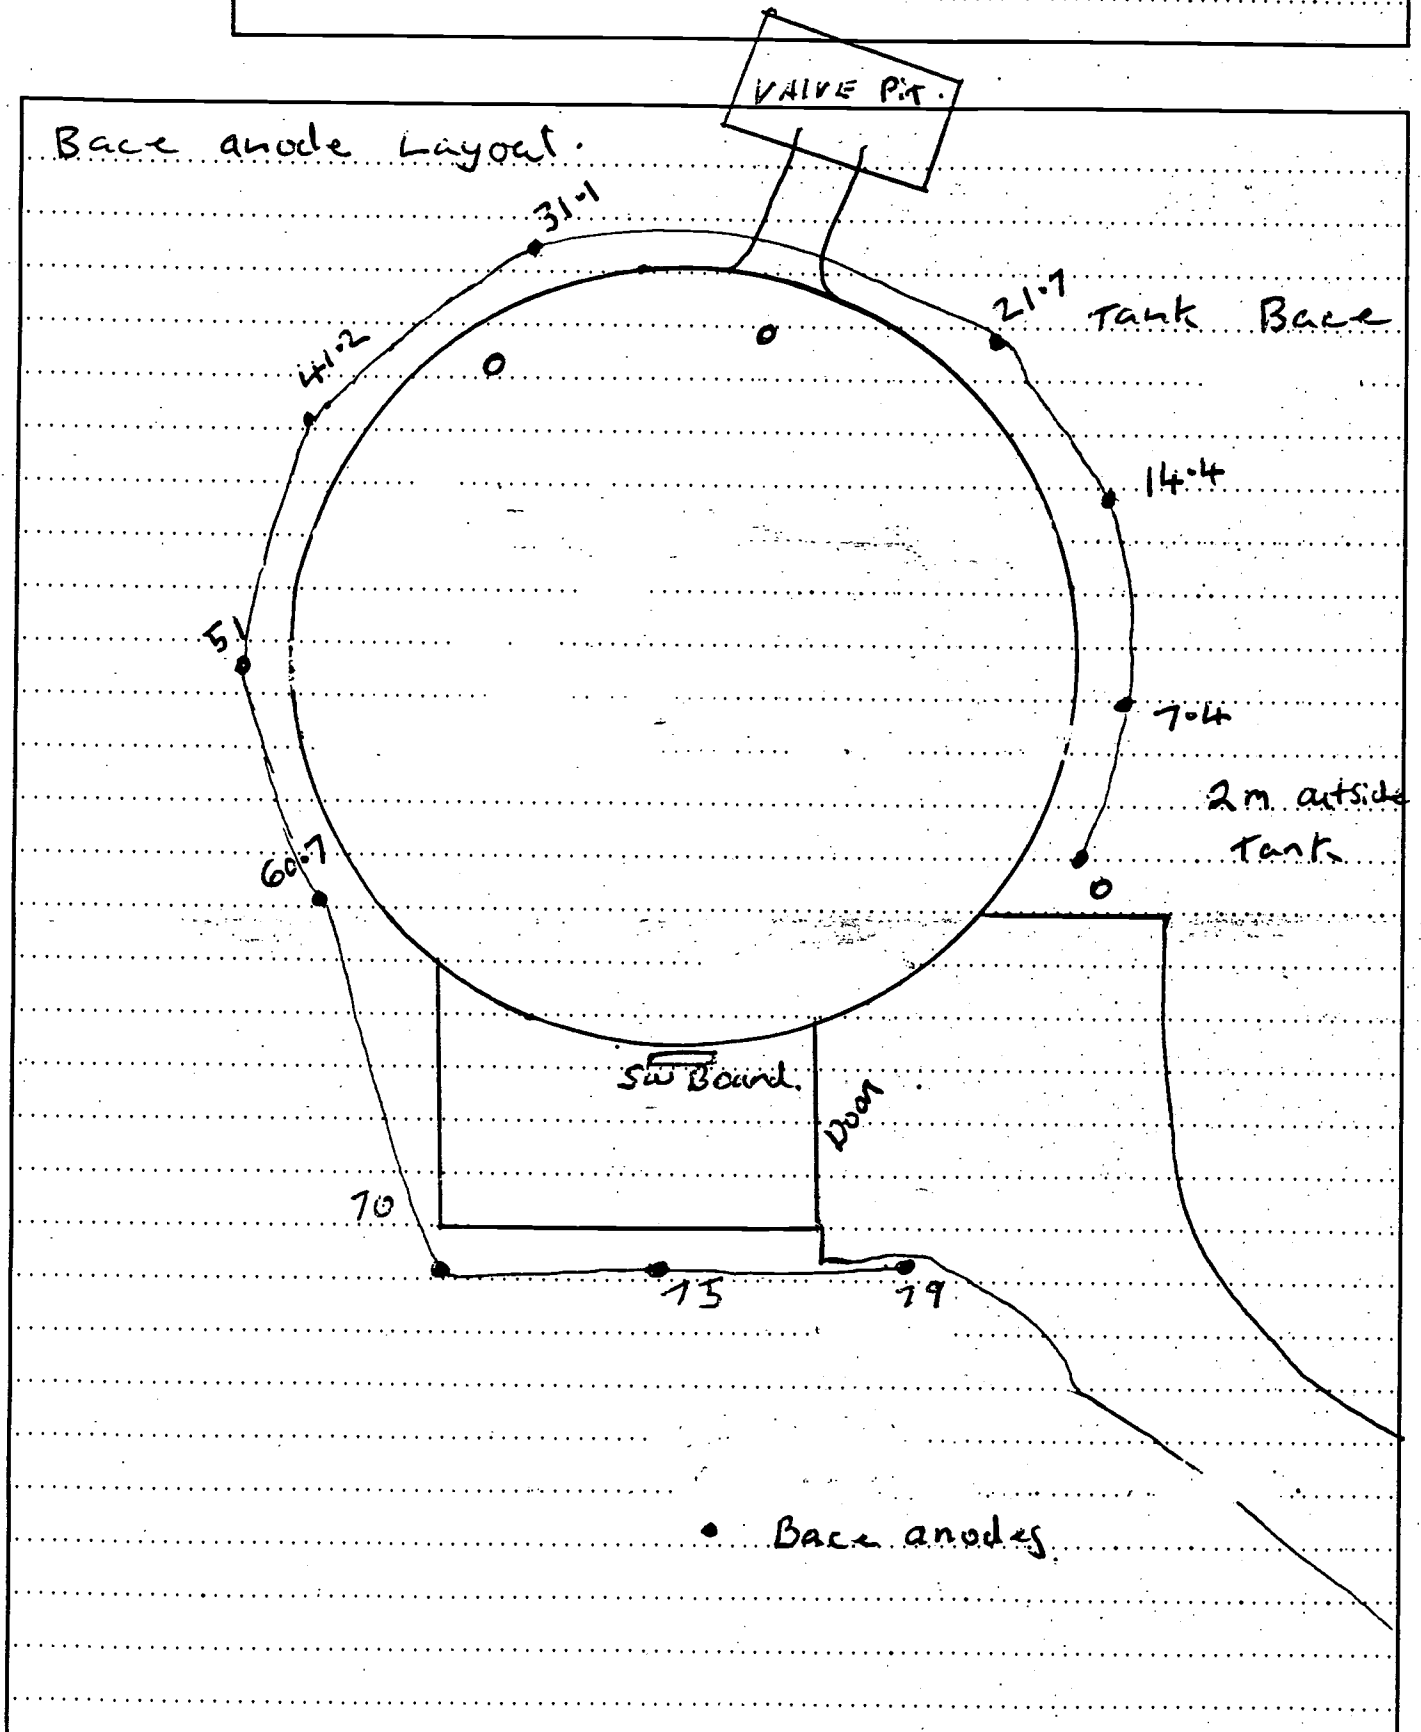 VALVE Pit.
Bace anode Layout.
31.1
21.7
Tank Bace
41.2
14.4
51
7.4
2m outside
Tank
60.7
0
SW Board.
Door
70
75
79
• Bace anodes